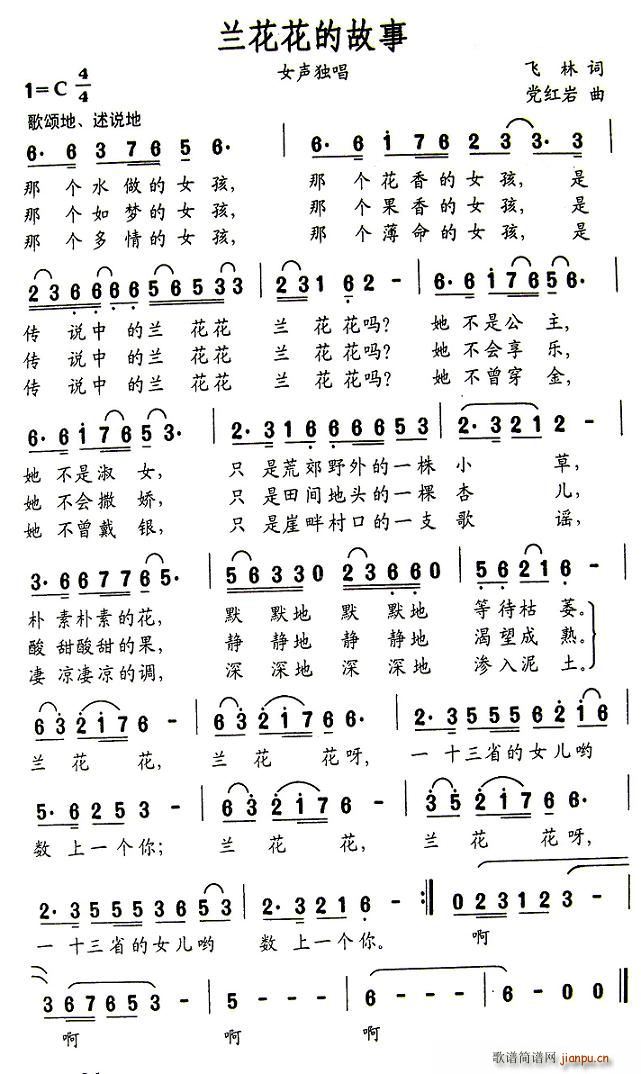 兰花花的故事
女声独唱
飞林 词
1=C 4/4
党红岩 曲
歌颂地、述说地
6· 6 3 7 6 5 6· | 6· 6 1 7 6 2 3· 3 |
那个水做的女孩, 那个花香的女孩, 是
那个如梦的女孩, 那个果香的女孩, 是
那个多情的女孩, 那个薄命的女孩, 是
2 3 6 6 6 6 5 6 5 3 3 | 2 3 1 6 2 - | 6· 6 1 7 6 5 6· |
传说中的兰花花 兰花花吗? 她不是公主,
传说中的兰花花 兰花花吗? 她不会享乐,
传说中的兰花花 兰花花吗? 她不曾穿金,
6· 6 1 7 6 5 3· | 2· 3 1 6 6 6 6 6 5 3 | 2· 3 2 1 2 - |
她不是淑女, 只是荒郊野外的一株小草,
她不会撒娇, 只是田间地头的一棵杏儿,
她不曾戴银, 只是崖畔村口的一支歌谣,
3· 6 6 7 7 6 6 5· | 5 6 3 3 0 2 3 6 6 0 | 5 6 2 1 6 - |
朴素朴素的花, 默默地默默地 等待枯萎。
酸甜酸甜的果, 静静地静静地 渴望成熟。
凄凉凄凉的调, 深深地深深地 渗入泥土。
6 3 2 1 7 6 - | 6 3 2 1 7 6 6· | 2· 3 5 5 5 6 2 1 6 |
兰花花, 兰花花呀, 一十三省的女儿哟
5· 6 2 5 3 - | 6 3 2 1 7 6 - | 3 5 2 1 7 6 6· |
数上一个你; 兰花花, 兰花花呀,
2· 3 5 5 5 3 6 5 3 | 2· 3 2 1 6 - :| 0 2 3 1 2 3 - |
一十三省的女儿哟 数上一个你。 啊
3 6 7 6 5 3 - | 5 - - - | 6 - - - | 6 0 0 ‖
啊 啊 啊
歌谱简谱网 jianpu.cn